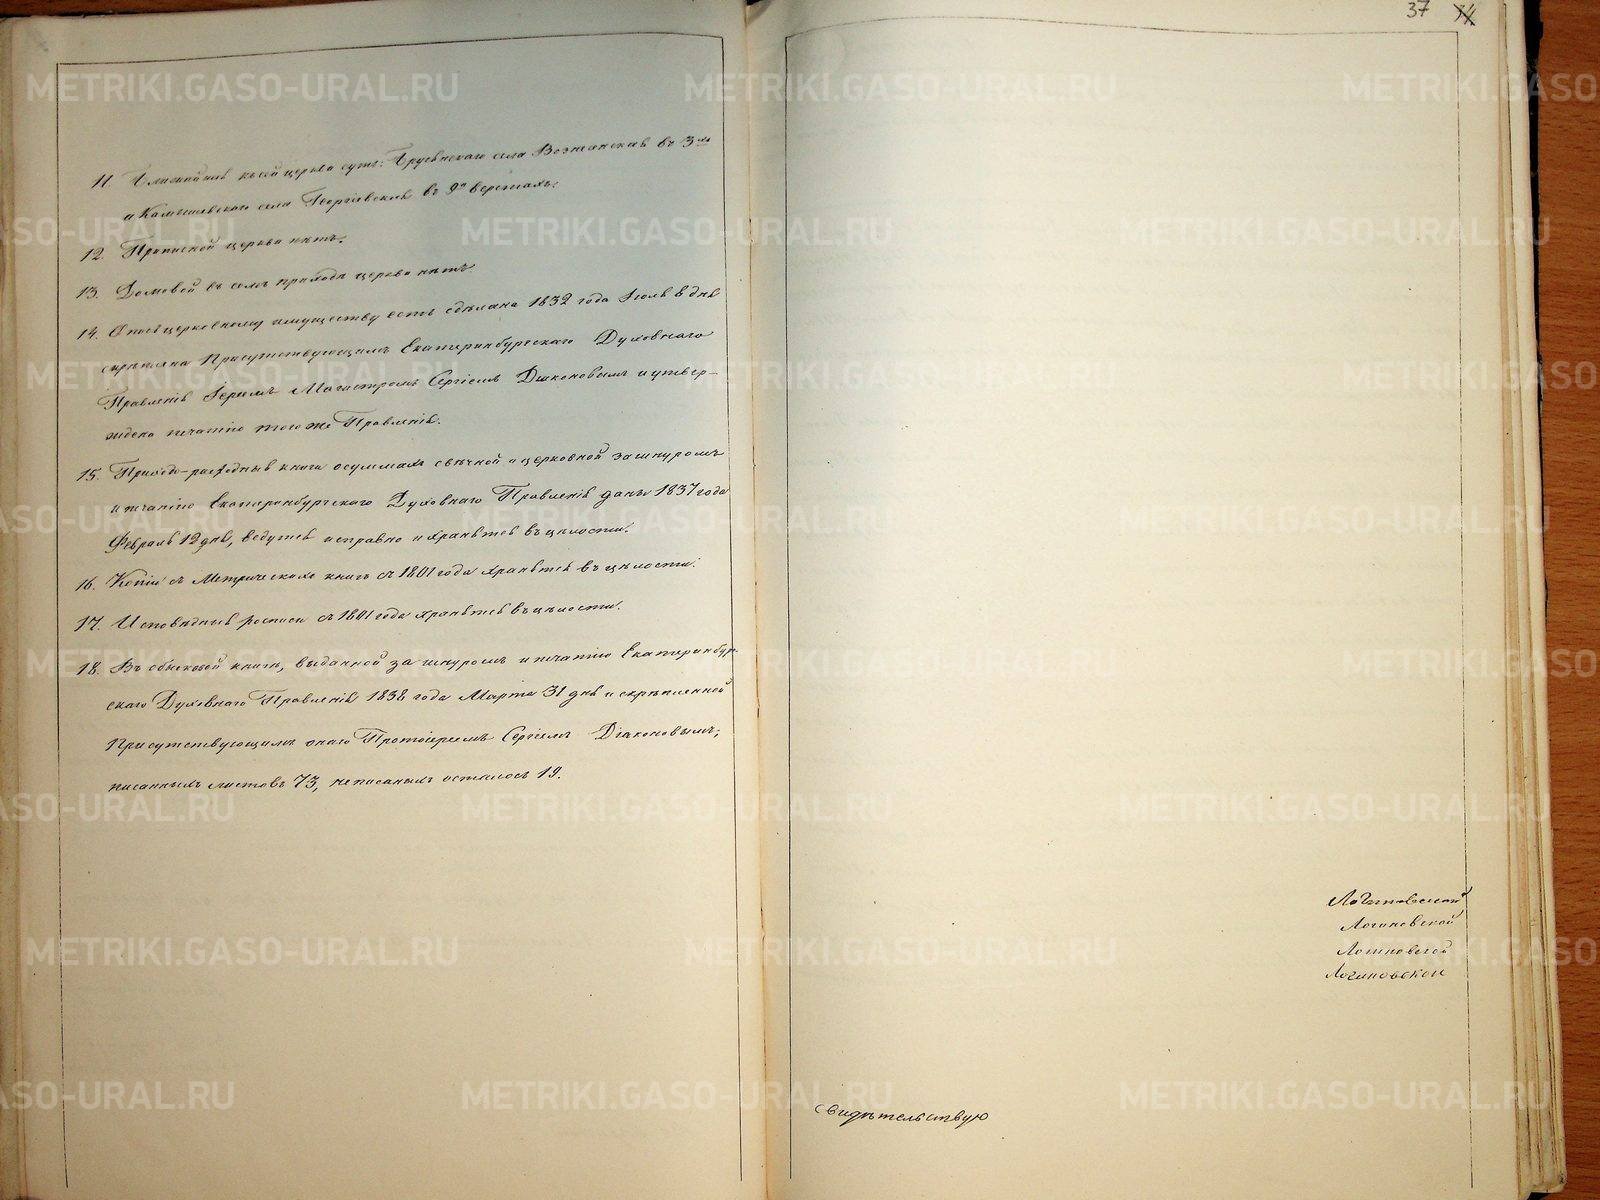 11. Ближайшія къ сей церкви суть: Бруснянскаго села Вознесенская въ 3хъ
и Камышевскаго села Георгіевская въ 9и верстахъ.
12. Приписной церкви нѣтъ.
13. Домовой въ семъ приходѣ церкви нѣтъ.
14. Опись церковному имуществу есть сдѣлана 1832 года Іюля 8 дня
скрѣплена Присутствующимъ Екатеринбургскаго Духовнаго
Правленія Іереемъ Магистромъ Сергіемъ Діаконовымъ и утвер-
ждена печатію того же Правленія.
15. Приходо-расходныя книги о суммахъ свѣчной и церковной за шнуромъ
и печатію Екатеринбургскаго Духовнаго Правленія даны 1837 года
Февраля 12 дня, ведутся исправно и хранятся въ цѣлости.
16. Копіи съ Метрическихъ книгъ съ 1801 года хранятся въ цѣлости.
17. Исповѣдныя росписи съ 1801 года хранятся въ цѣлости.
18. Въ обыскной книгѣ, выданной за шнуромъ и печатію Екатеринбург-
скаго Духовнаго Правленія 1838 года Марта 31 дня и скрѣпленной
Присутствующимъ онаго Протоіереемъ Сергіемъ Діаконовымъ,
писанныхъ листовъ 73, неписаныхъ осталось 19.
37 34
Логиновской
Логиновской
Логиновской
Логиновской
свидѣтельствую
METRIKI.GASO-URAL.RU